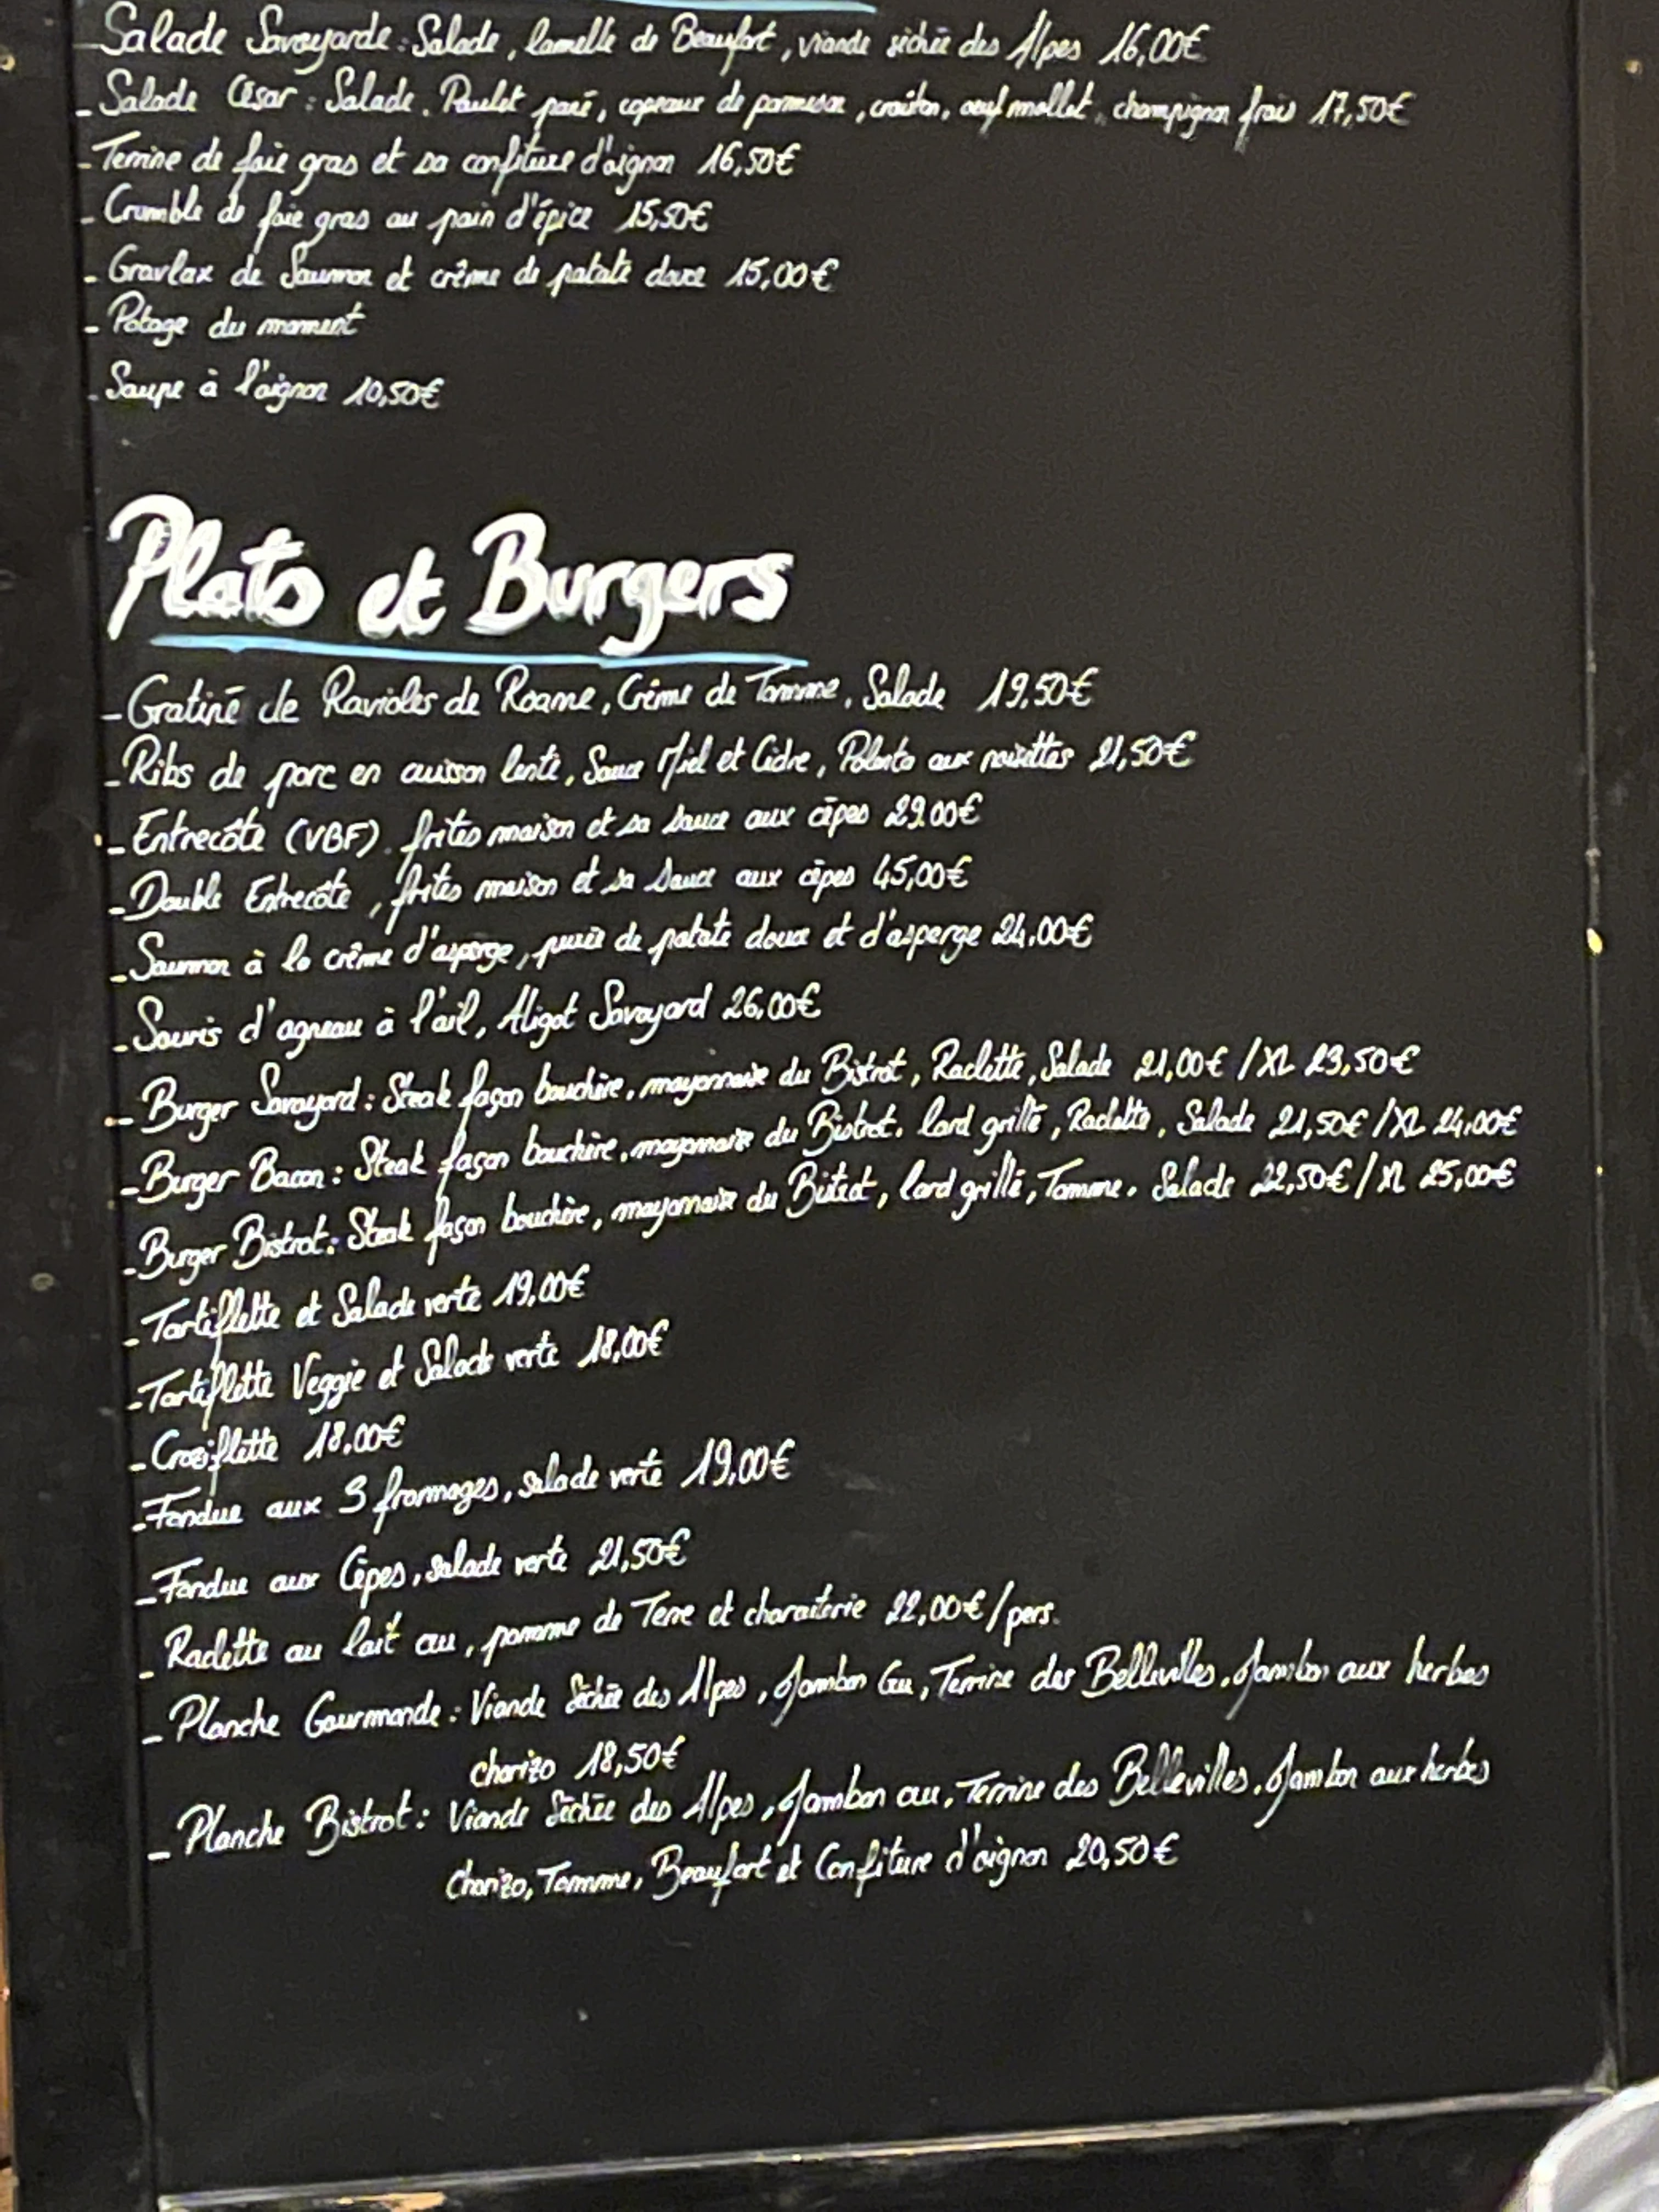 Salade Savoyarde : Salade, lamelle de Beaufort, viande séchée des Alpes 16,00€
- Salade César : Salade. Poulet pané, copeaux de parmesan, croûton, oeuf mollet, champignon frais 17,50€
- Terrine de foie gras et sa confiture d'oignon 16,50€
- Crumble de foie gras au pain d'épice 15,50€
- Gravlax de Saumon et crème de patate douce 15,00€
- Potage du moment
- Soupe à l'oignon 10,50€
Plats et Burgers
- Gratiné de Ravioles de Royans, Crème de Tomme, Salade 19,50€
- Ribs de porc en cuisson lente, Sauce Miel et Cidre, Polenta aux noisettes 21,50€
- Entrecôte (VBF). frites maison et sa sauce aux cèpes 29.00€
- Double Entrecôte, frites maison et sa sauce aux cèpes 45,00€
- Saumon à la crème d'asperge, purée de patate douce et d'asperge 24,00€
- Souris d'agneau à l'ail, Aligot Savoyard 26,00€
- Burger Savoyard : Steak façon bouchère, mayonnaise du Bistrot, Raclette, Salade 21,00€ / XL 23,50€
- Burger Bacon : Steak façon bouchère, mayonnaise du Bistrot, lard grillé, Raclette, Salade 21,50€ / XL 24,00€
- Burger Bistrot : Steak façon bouchère, mayonnaise du Bistrot, lard grillé, Tomme. Salade 22,50€ / XL 25,00€
- Tartiflette et Salade verte 19,00€
- Tartiflette Veggie et Salade verte 18,00€
- Croziflette 18,00€
- Fondue aux 3 frommages, salade verte 19,00€
- Fondue aux Cèpes, salade verte 21,50€
- Raclette au lait cru, pomme de Terre et charcuterie 22,00€/pers.
- Planche Gourmande : Viande Séchée des Alpes, Jambon Cru, Terrine des Bellevilles, Jambon aux herbes
chorizo 18,50€
- Planche Bistrot : Viande Séchée des Alpes, Jambon cru, Terrine des Bellevilles, Jambon aux herbes
Chorizo, Tomme, Beaufort et Confiture d'oignon 20,50€